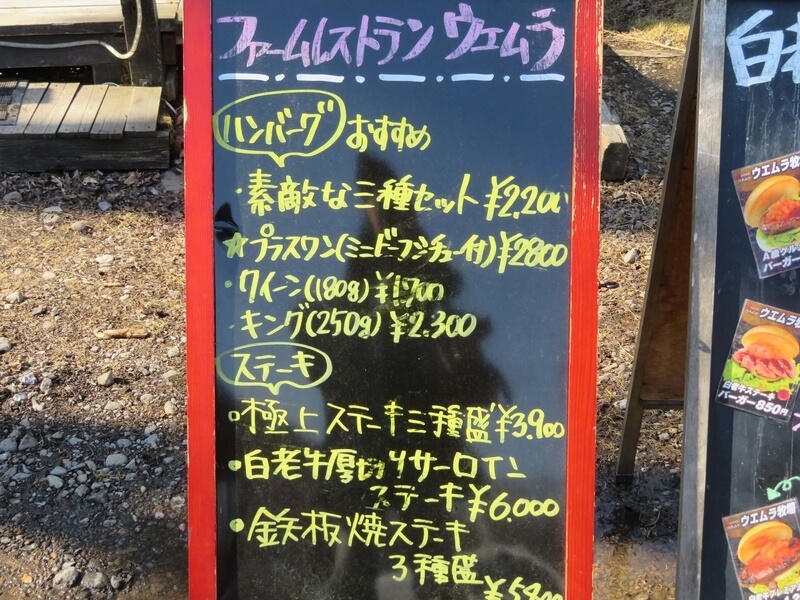 ファームレストラン ウエムラ
ハンバーグ おすすめ
・素敵な三種セット ¥2,200
☆プラスワン(ミニビーフシチュー付)¥2800
・クイーン(180g) ¥1,700
・キング(250g) ¥2,300
ステーキ
・極上ステーキ三種盛¥3,900
・白老牛厚切りサーロイン
ステーキ¥6,000
・鉄板焼ステーキ
3種盛
白老
ウエムラ牧場
バーガー
白老牛ステーキ
バーガー 850円
ウエムラ牧場